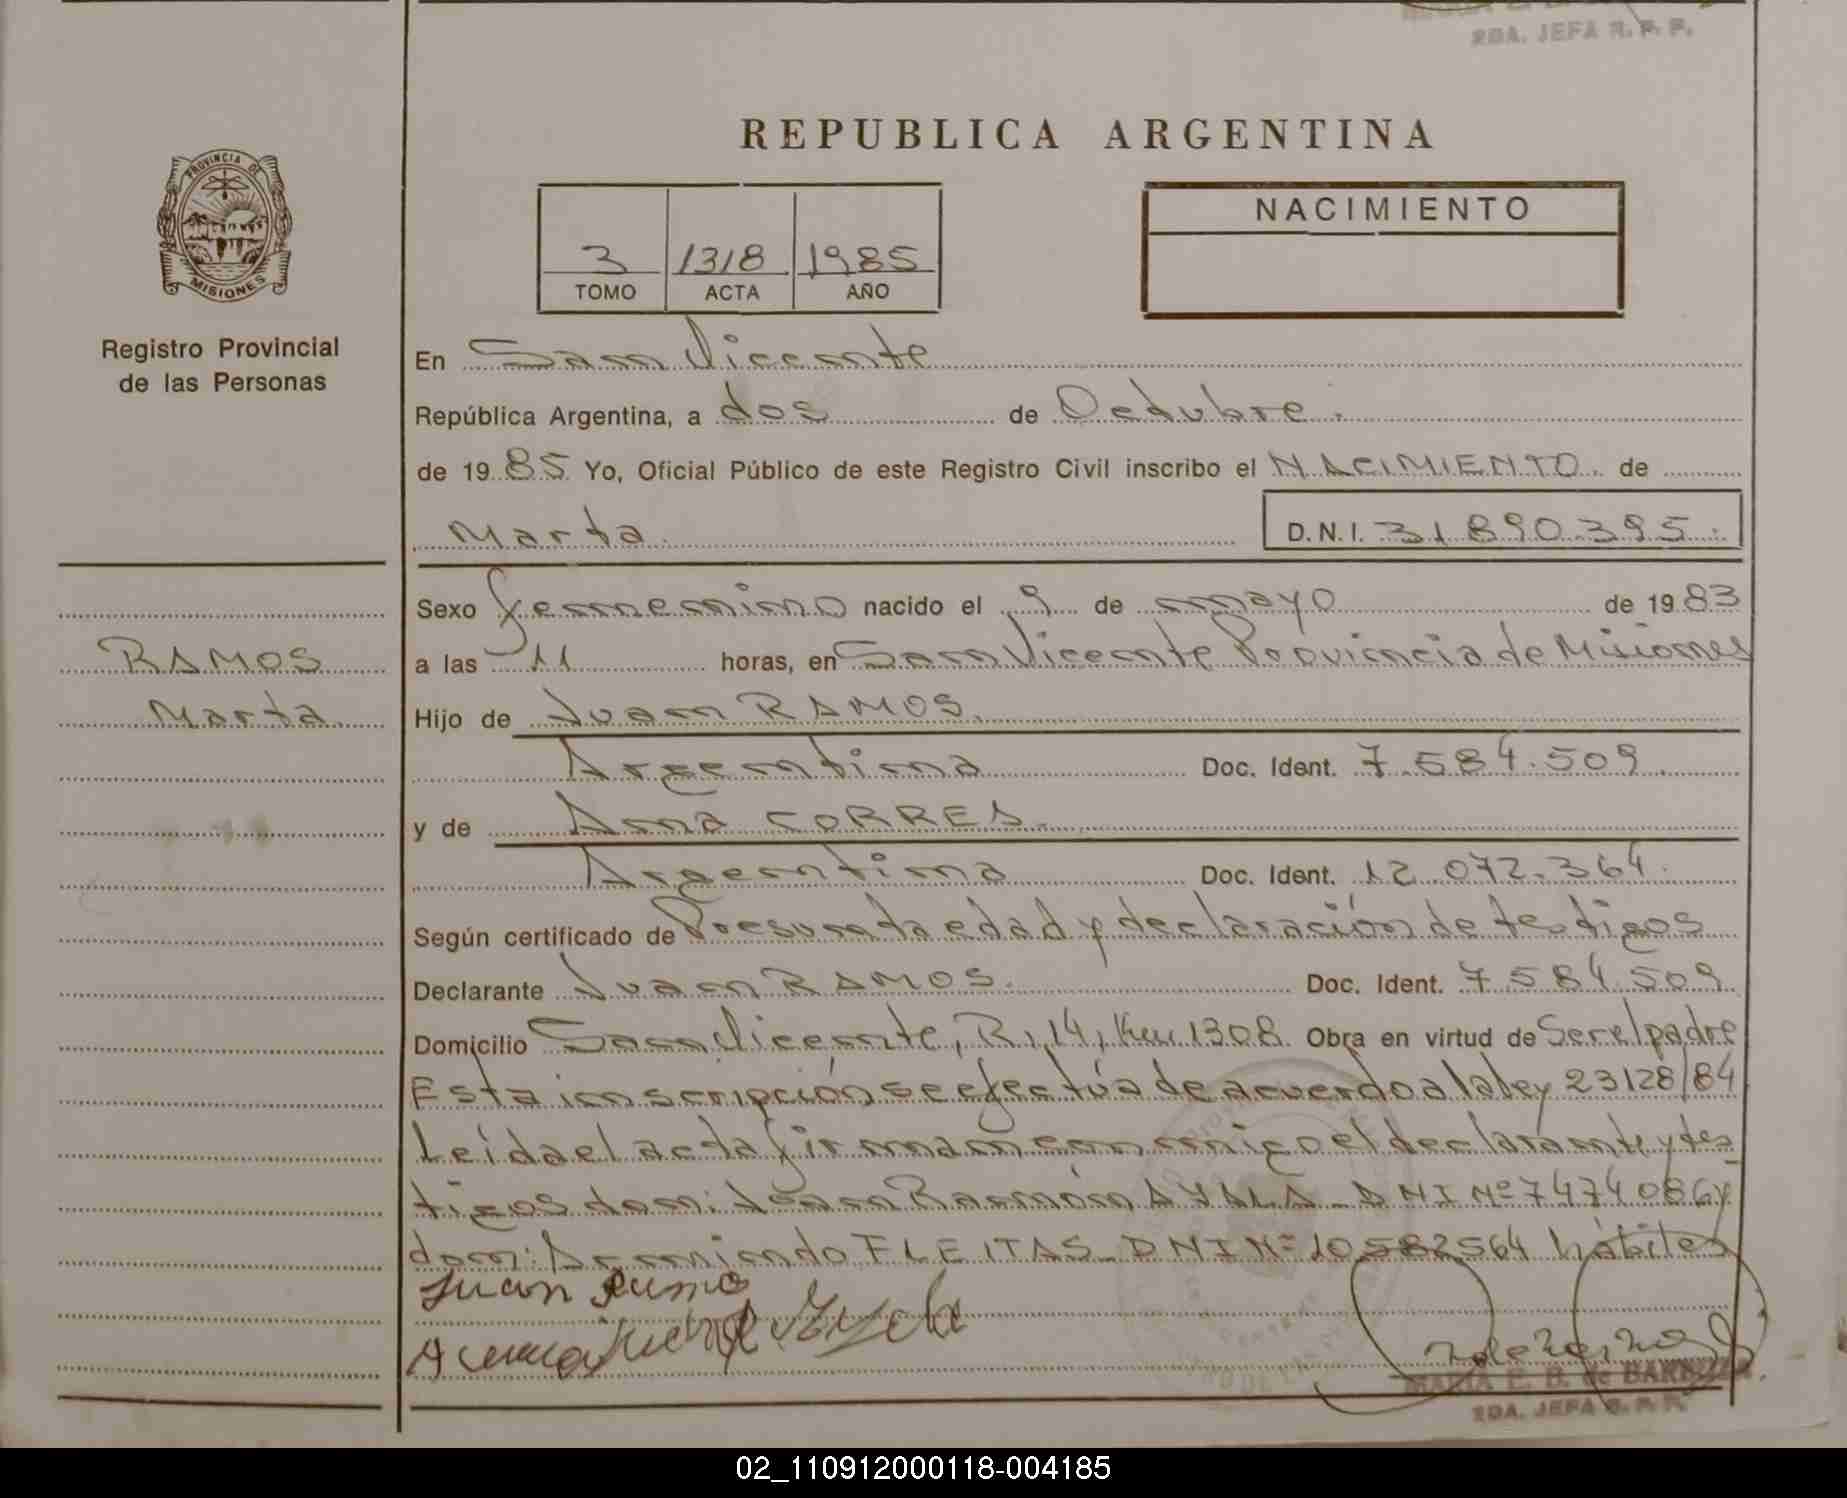 2DA. JEFA R. P. P.
REPUBLICA ARGENTINA
PROVINCIA DE
MISIONES
3 1318 1985
TOMO ACTA AÑO
NACIMIENTO
Registro Provincial
de las Personas
RAMOS
Marta
En San Vicente
República Argentina, a dos de Octubre.
de 1985 Yo, Oficial Público de este Registro Civil inscribo el NACIMIENTO de
Marta D.N.I. 31.890.395.
Sexo femenino nacido el 9 de mayo de 1983
a las 11 horas, en San Vicente Provincia de Misiones
Hijo de Juan RAMOS.
Argentina Doc. Ident. 7.584.509
y de Ana CORREA.
Argentina Doc. Ident. 12.072.364.
Según certificado de Presunta edad y declaración de testigos
Declarante Juan RAMOS. Doc. Ident. 7.584.509
Domicilio San Vicente, R, 14, Km 1308. Obra en virtud de Ser el padre
Esta inscripción se efectúa de acuerdo a la ley 23128/84
Leída el acta firman conmigo el declarante y tes
tigos don: Juan Ramón AYALA - DNI Nº 7474086 y
don: Armindo FLEITAS - DNI Nº 10582564 hábiles
Juan Ramo
MARIA E. B. de
2DA. JEFA R. P. P.
02_110912000118-004185